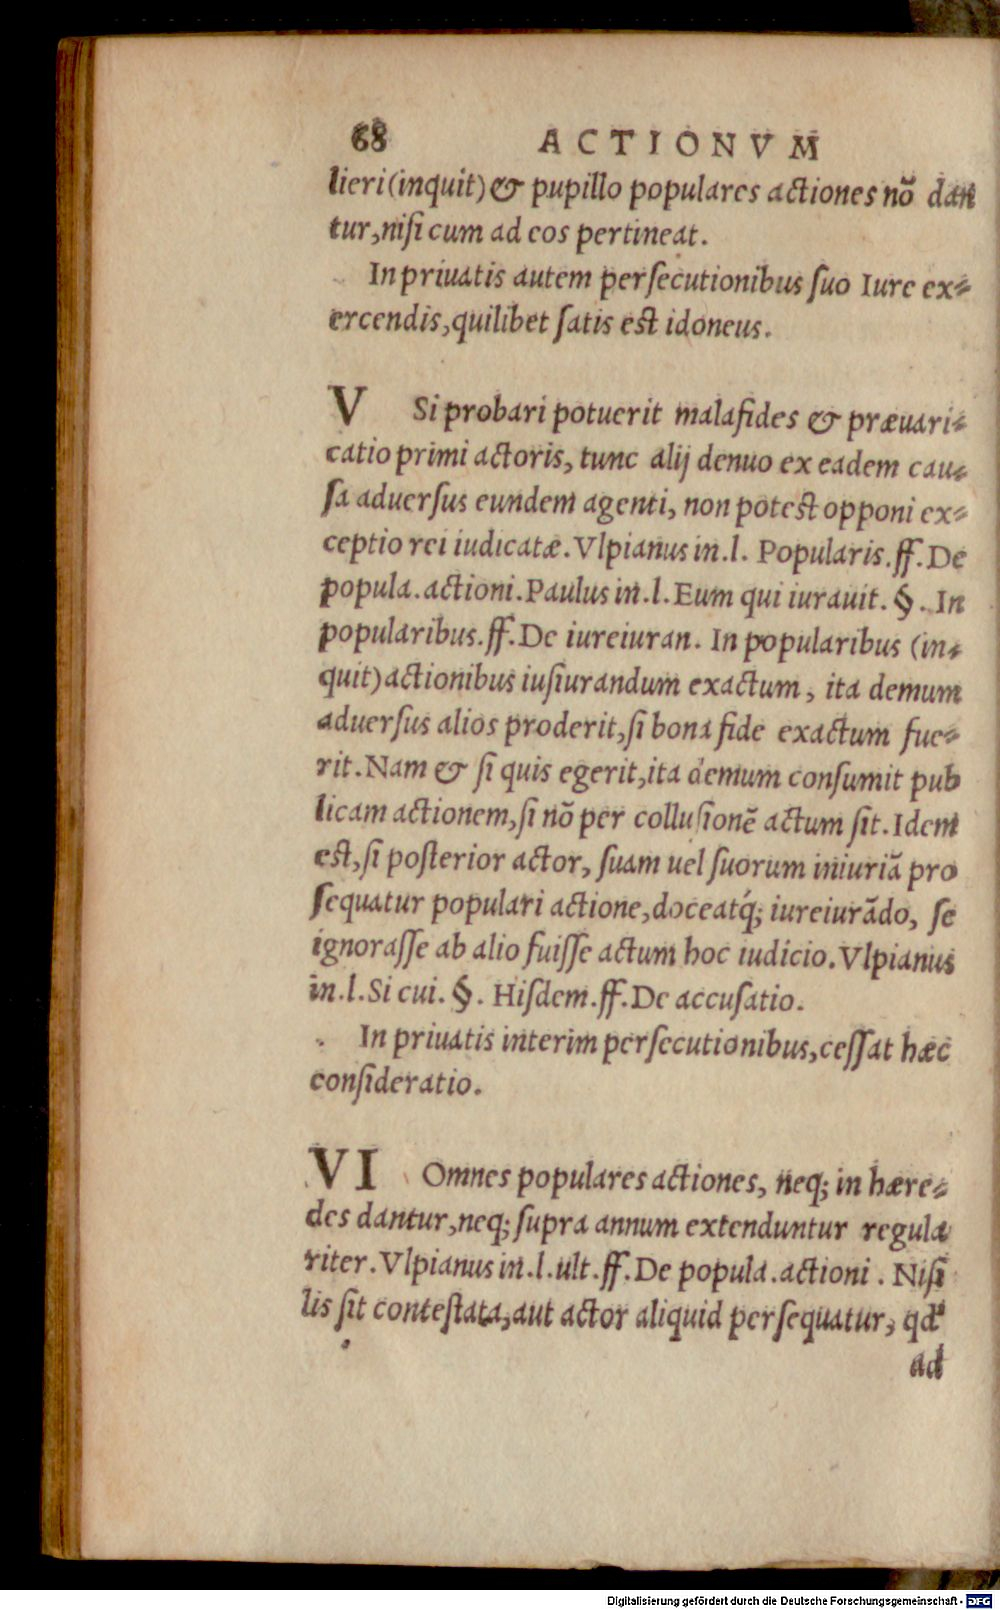 68 ACTIONVM
lieri(inquit)& pupillo populares actiones nō dan
tur,nisi cum ad eos pertineat.
In priuatis autem persecutionibus suo Iure ex-
ercendis,quilibet satis est idoneus.
V Si probari potuerit malafides & præuari-
catio primi actoris, tunc alij denuo ex eadem cau-
sa aduersus eundem agenti, non potest opponi ex-
ceptio rei iudicatæ. Vlpianus in.l. Popularis.ff.De
popula.actioni.Paulus in.l.Eum qui iurauit. §. In
popularibus.ff.De iureiuran. In popularibus (in-
quit)actionibus iusiurandum exactum, ita demum
aduersus alios proderit,si bona fide exactum fue-
rit.Nam & si quis egerit,ita demum consumit pub
licam actionem,si nō per collusionē actum sit.Idem
est,si posterior actor, suam uel suorum iniuriā pro
sequatur populari actione,doceatq́; iureiurādo, se
ignorasse ab alio fuisse actum hoc iudicio.Vlpianus
in.l.Si cui. §. Hisdem.ff.De accusatio.
In priuatis interim persecutionibus,cessat hæc
consideratio.
VI Omnes populares actiones, neq; in hære-
des dantur,neq; supra annum extenduntur regula
riter.Vlpianus in.l.ult.ff.De popula.actioni. Nisi
lis sit contestata,aut actor aliquid persequatur, qd'
ad
Digitalisierung gefördert durch die Deutsche Forschungsgemeinschaft - DFG